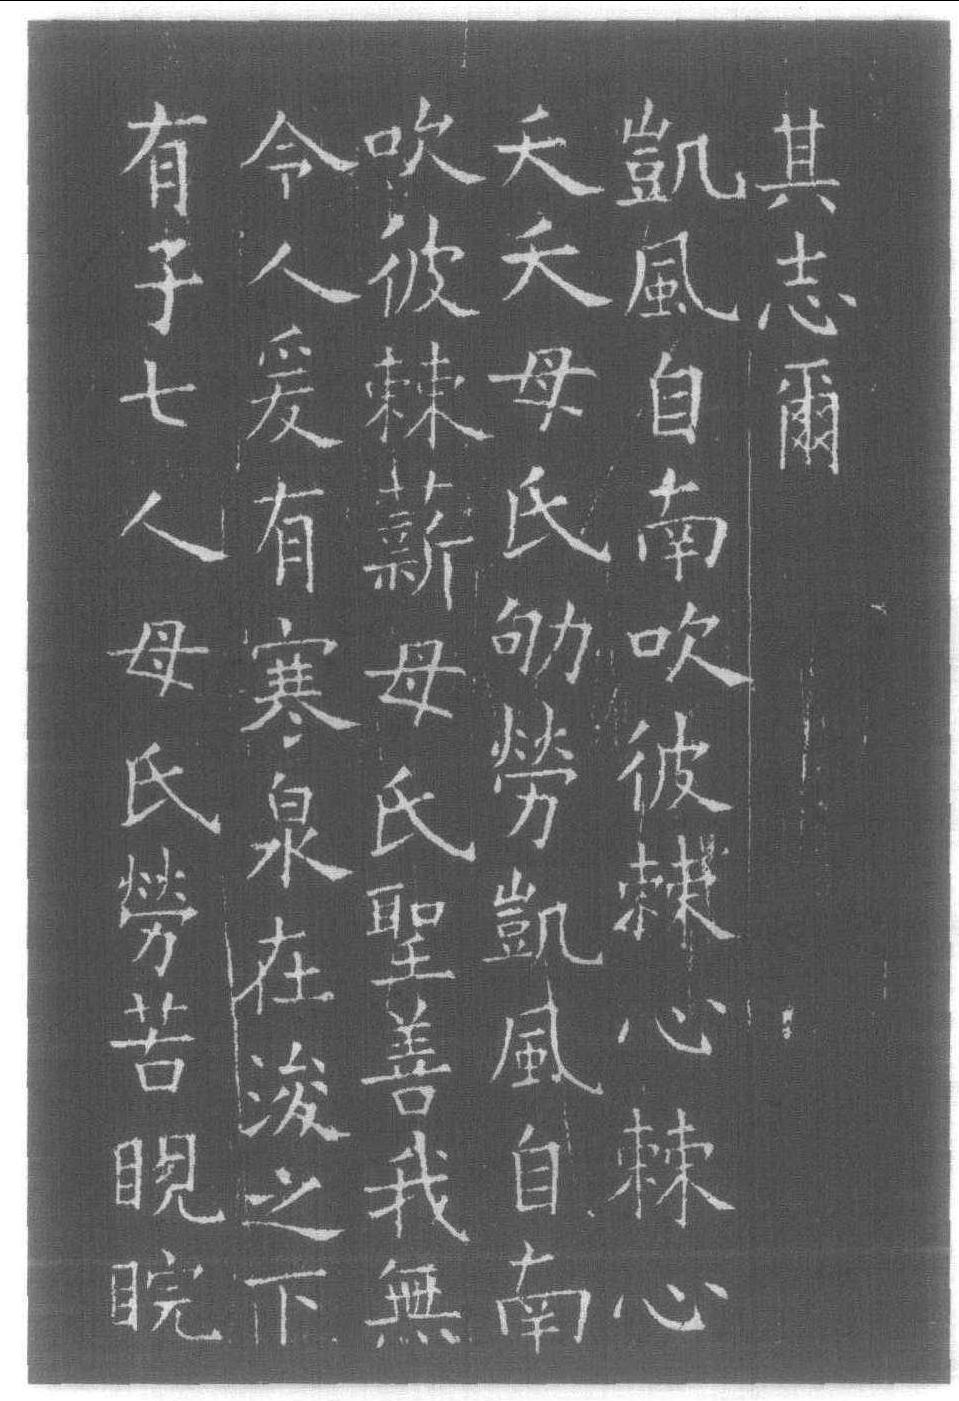 其志爾
凱風自南吹彼棘心棘心
夭夭母氏劬勞凱風自南
吹彼棘薪母氏聖善我無
令人爰有寒泉在浚之下
有子七人母氏勞苦睍睆